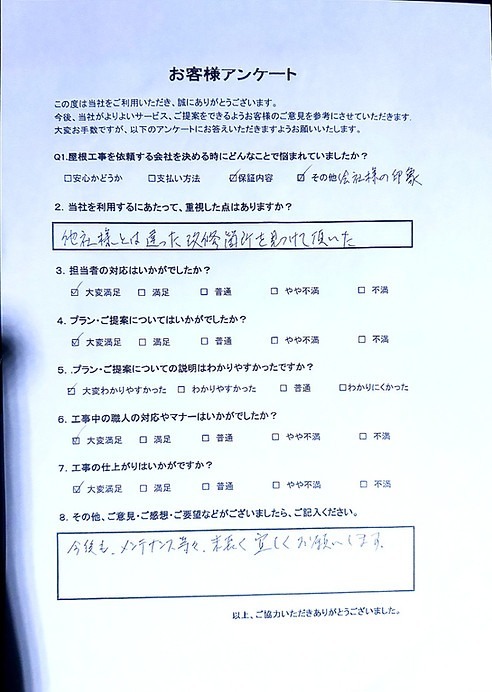 お客様アンケート
この度は当社をご利用いただき、誠にありがとうございます。
今後、当社がよりよいサービス、ご提案をできるようお客様のご意見を参考にさせていただきます。
大変お手数ですが、以下のアンケートにお答えいただきますようお願いいたします。
Q1.屋根工事を依頼する会社を決める時にどんなことで悩まれていましたか?
□安心かどうか □支払い方法 ☑保証内容 ☑その他 会社様の印象
2. 当社を利用するにあたって、重視した点はありますか?
他社様とは違った改修箇所を見つけて頂いた
3. 担当者の対応はいかがでしたか?
☑ 大変満足 □ 満足 □ 普通 □ やや不満 □ 不満
4. プラン・ご提案についてはいかがでしたか?
☑ 大変満足 □ 満足 □ 普通 □ やや不満 □ 不満
5. .プラン・ご提案についての説明はわかりやすかったですか?
☑ 大変わかりやすかった □ わかりやすかった □ 普通 □わかりにくかった
6. 工事中の職人の対応やマナーはいかがでしたか?
☑ 大変満足 □ 満足 □ 普通 □ やや不満 □ 不満
7. 工事の仕上がりはいかがですか?
☑ 大変満足 □ 満足 □ 普通 □ やや不満 □ 不満
8. その他、ご意見・ご感想・ご要望などがございましたら、ご記入ください。
今後も、メンテナンス等々、末長く宜しくお願いします。
以上、ご協力いただきありがとうございました。